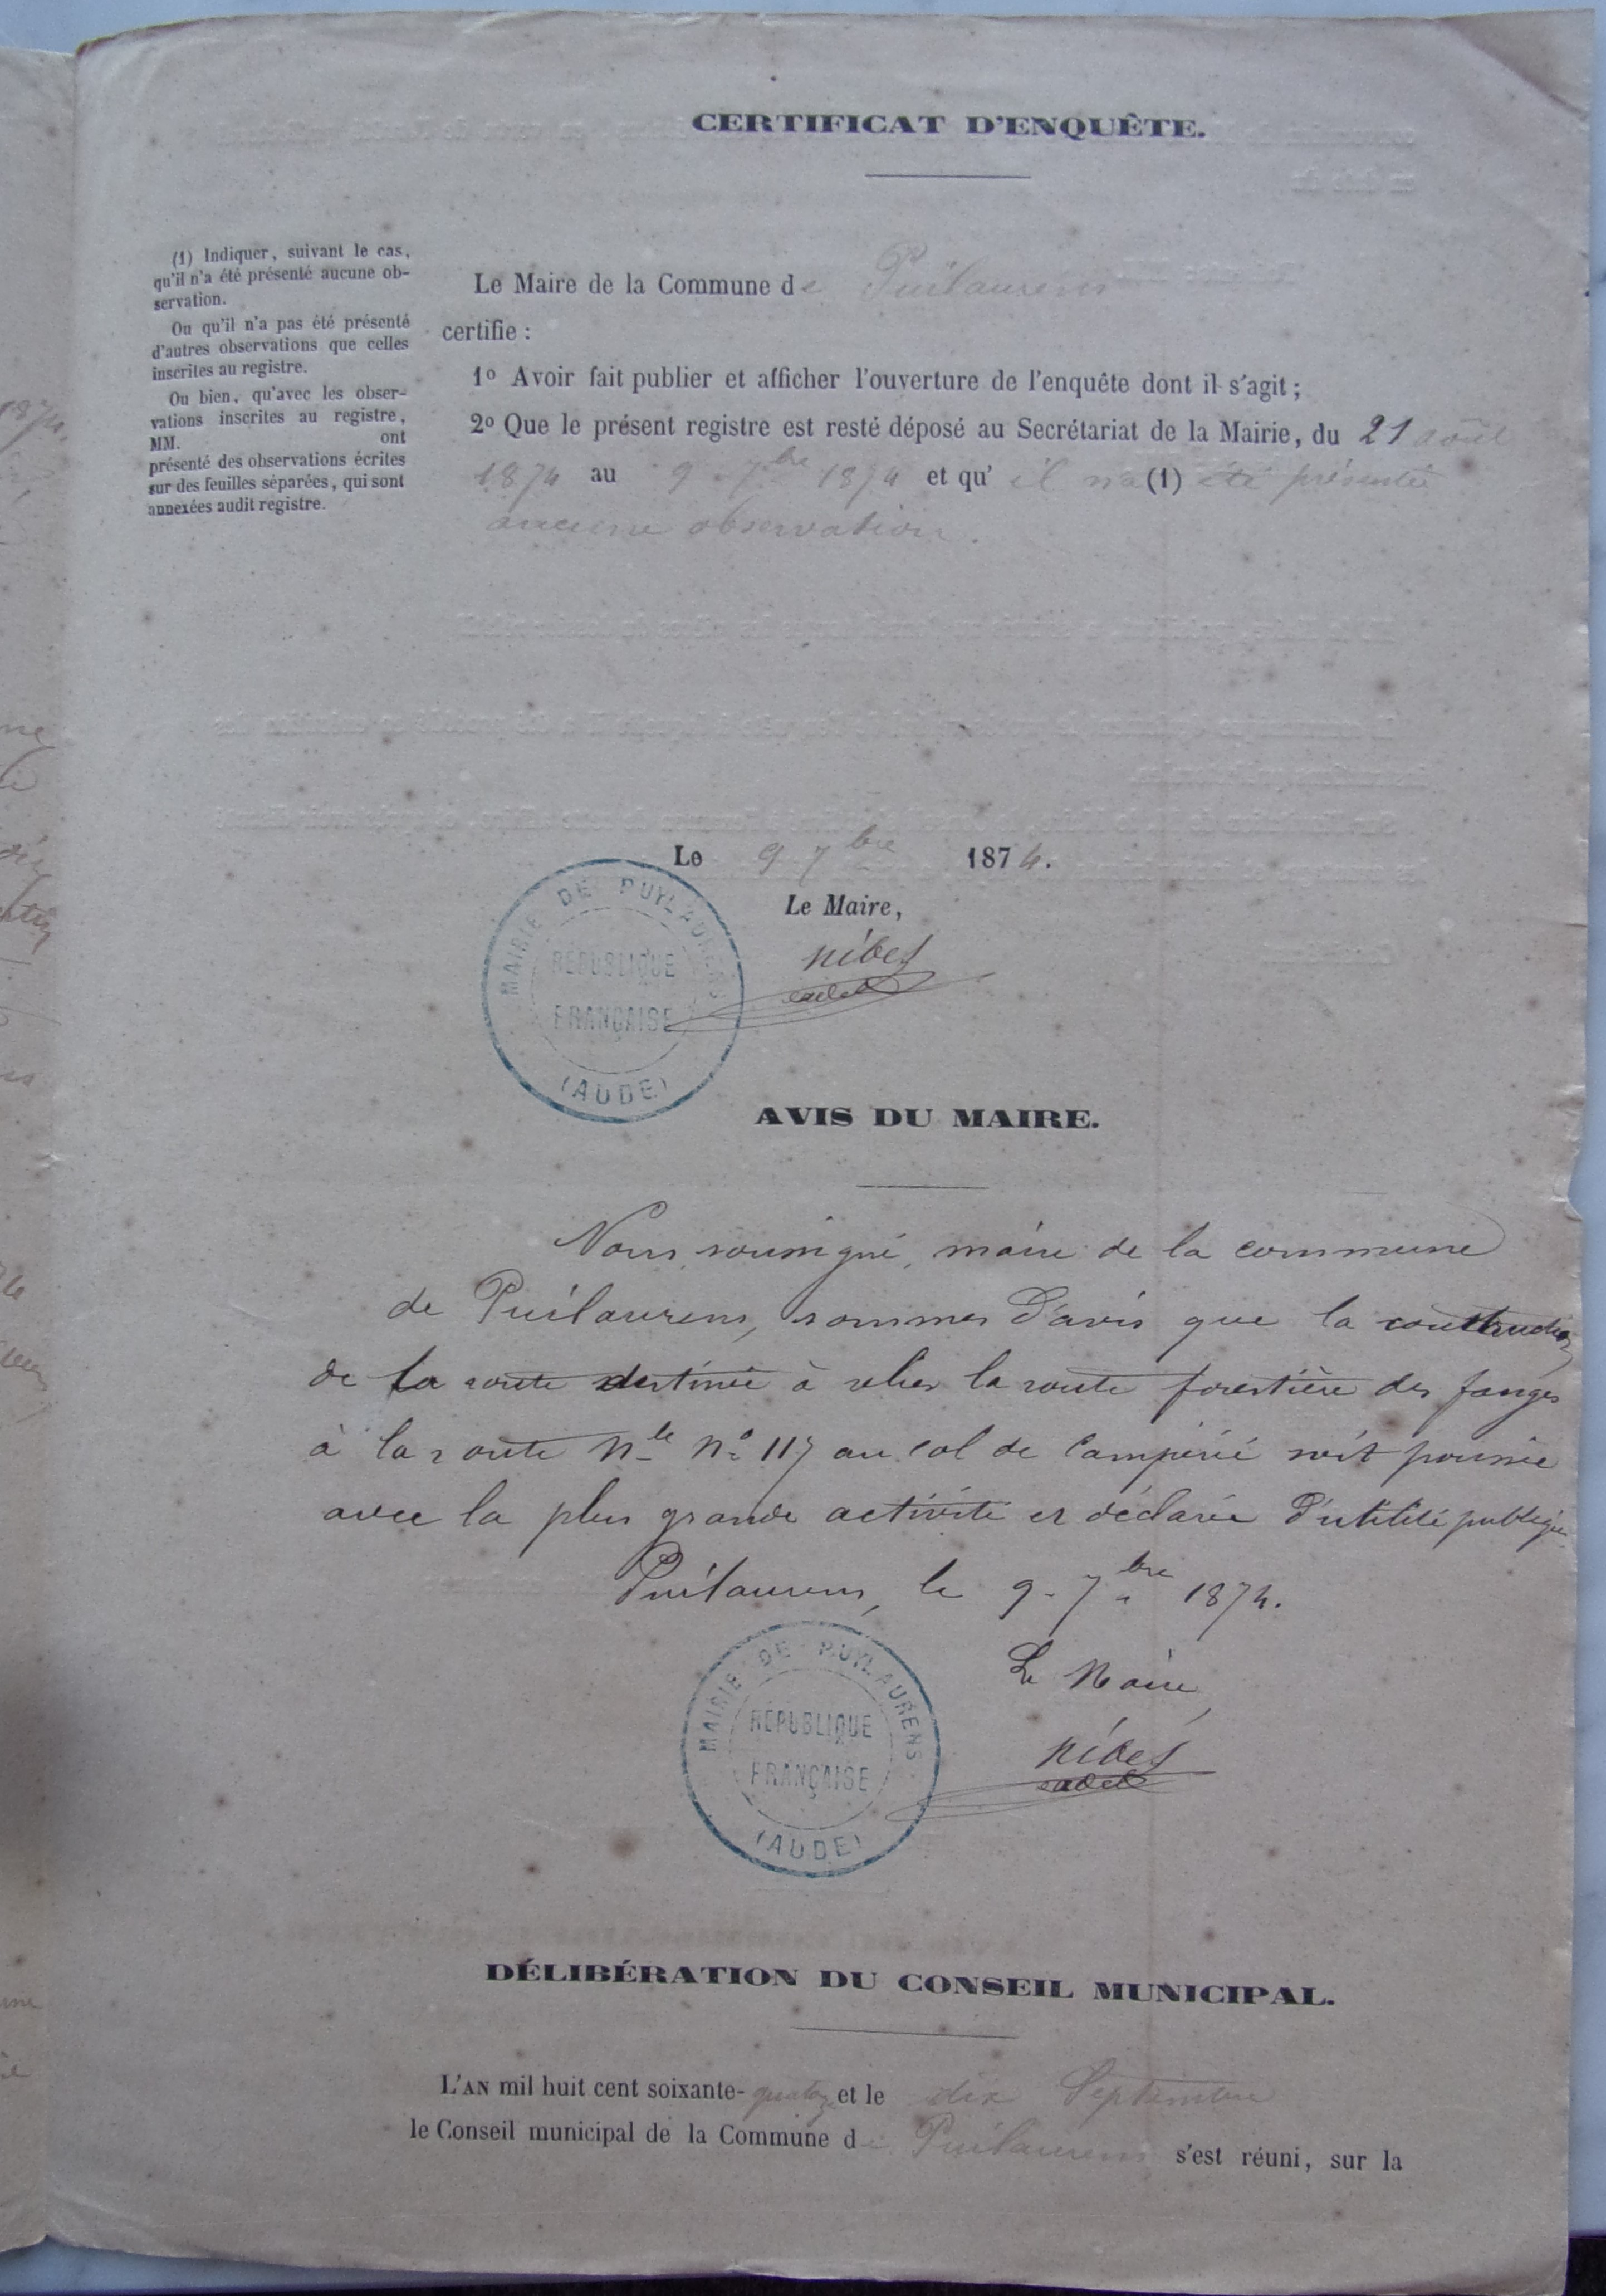 CERTIFICAT D'ENQUÊTE.
(1) Indiquer, suivant le cas,
qu'il n'a été présenté aucune ob-
servation.
Ou qu'il n'a pas été présenté
d'autres observations que celles
inscrites au registre.
Ou bien, qu'avec les obser-
vations inscrites au registre,
MM. ont
présenté des observations écrites
sur des feuilles séparées, qui sont
annexées audit registre.
Le Maire de la Commune de Puilaurens
certifie :
1º Avoir fait publier et afficher l'ouverture de l'enquête dont il s'agit ;
2º Que le présent registre est resté déposé au Secrétariat de la Mairie, du 21 août
1874 au 9 7bre 1874 et qu'il n'a (1) été présenté
aucune observation.
Le 9 7bre 1874.
Le Maire,
Nibes
cadet
MAIRIE DE PUYLAURENS
RÉPUBLIQUE
FRANÇAISE
(AUDE)
AVIS DU MAIRE.
Nous, soussigné, maire de la commune
de Puilaurens, sommes d'avis que la construction
de la route destinée à relier la route forestière des fanges
à la route Nle Nº 117 au col de Campérié soit poussée
avec la plus grande activité et déclarée d'utilité publique
Puilaurens, le 9 - 7bre 1874.
Le Maire,
Nibes
cadet
MAIRIE DE PUYLAURENS
RÉPUBLIQUE
FRANÇAISE
(AUDE)
DÉLIBÉRATION DU CONSEIL MUNICIPAL.
L'AN mil huit cent soixante-quatorze et le dix Septembre
le Conseil municipal de la Commune de Puilaurens s'est réuni, sur la